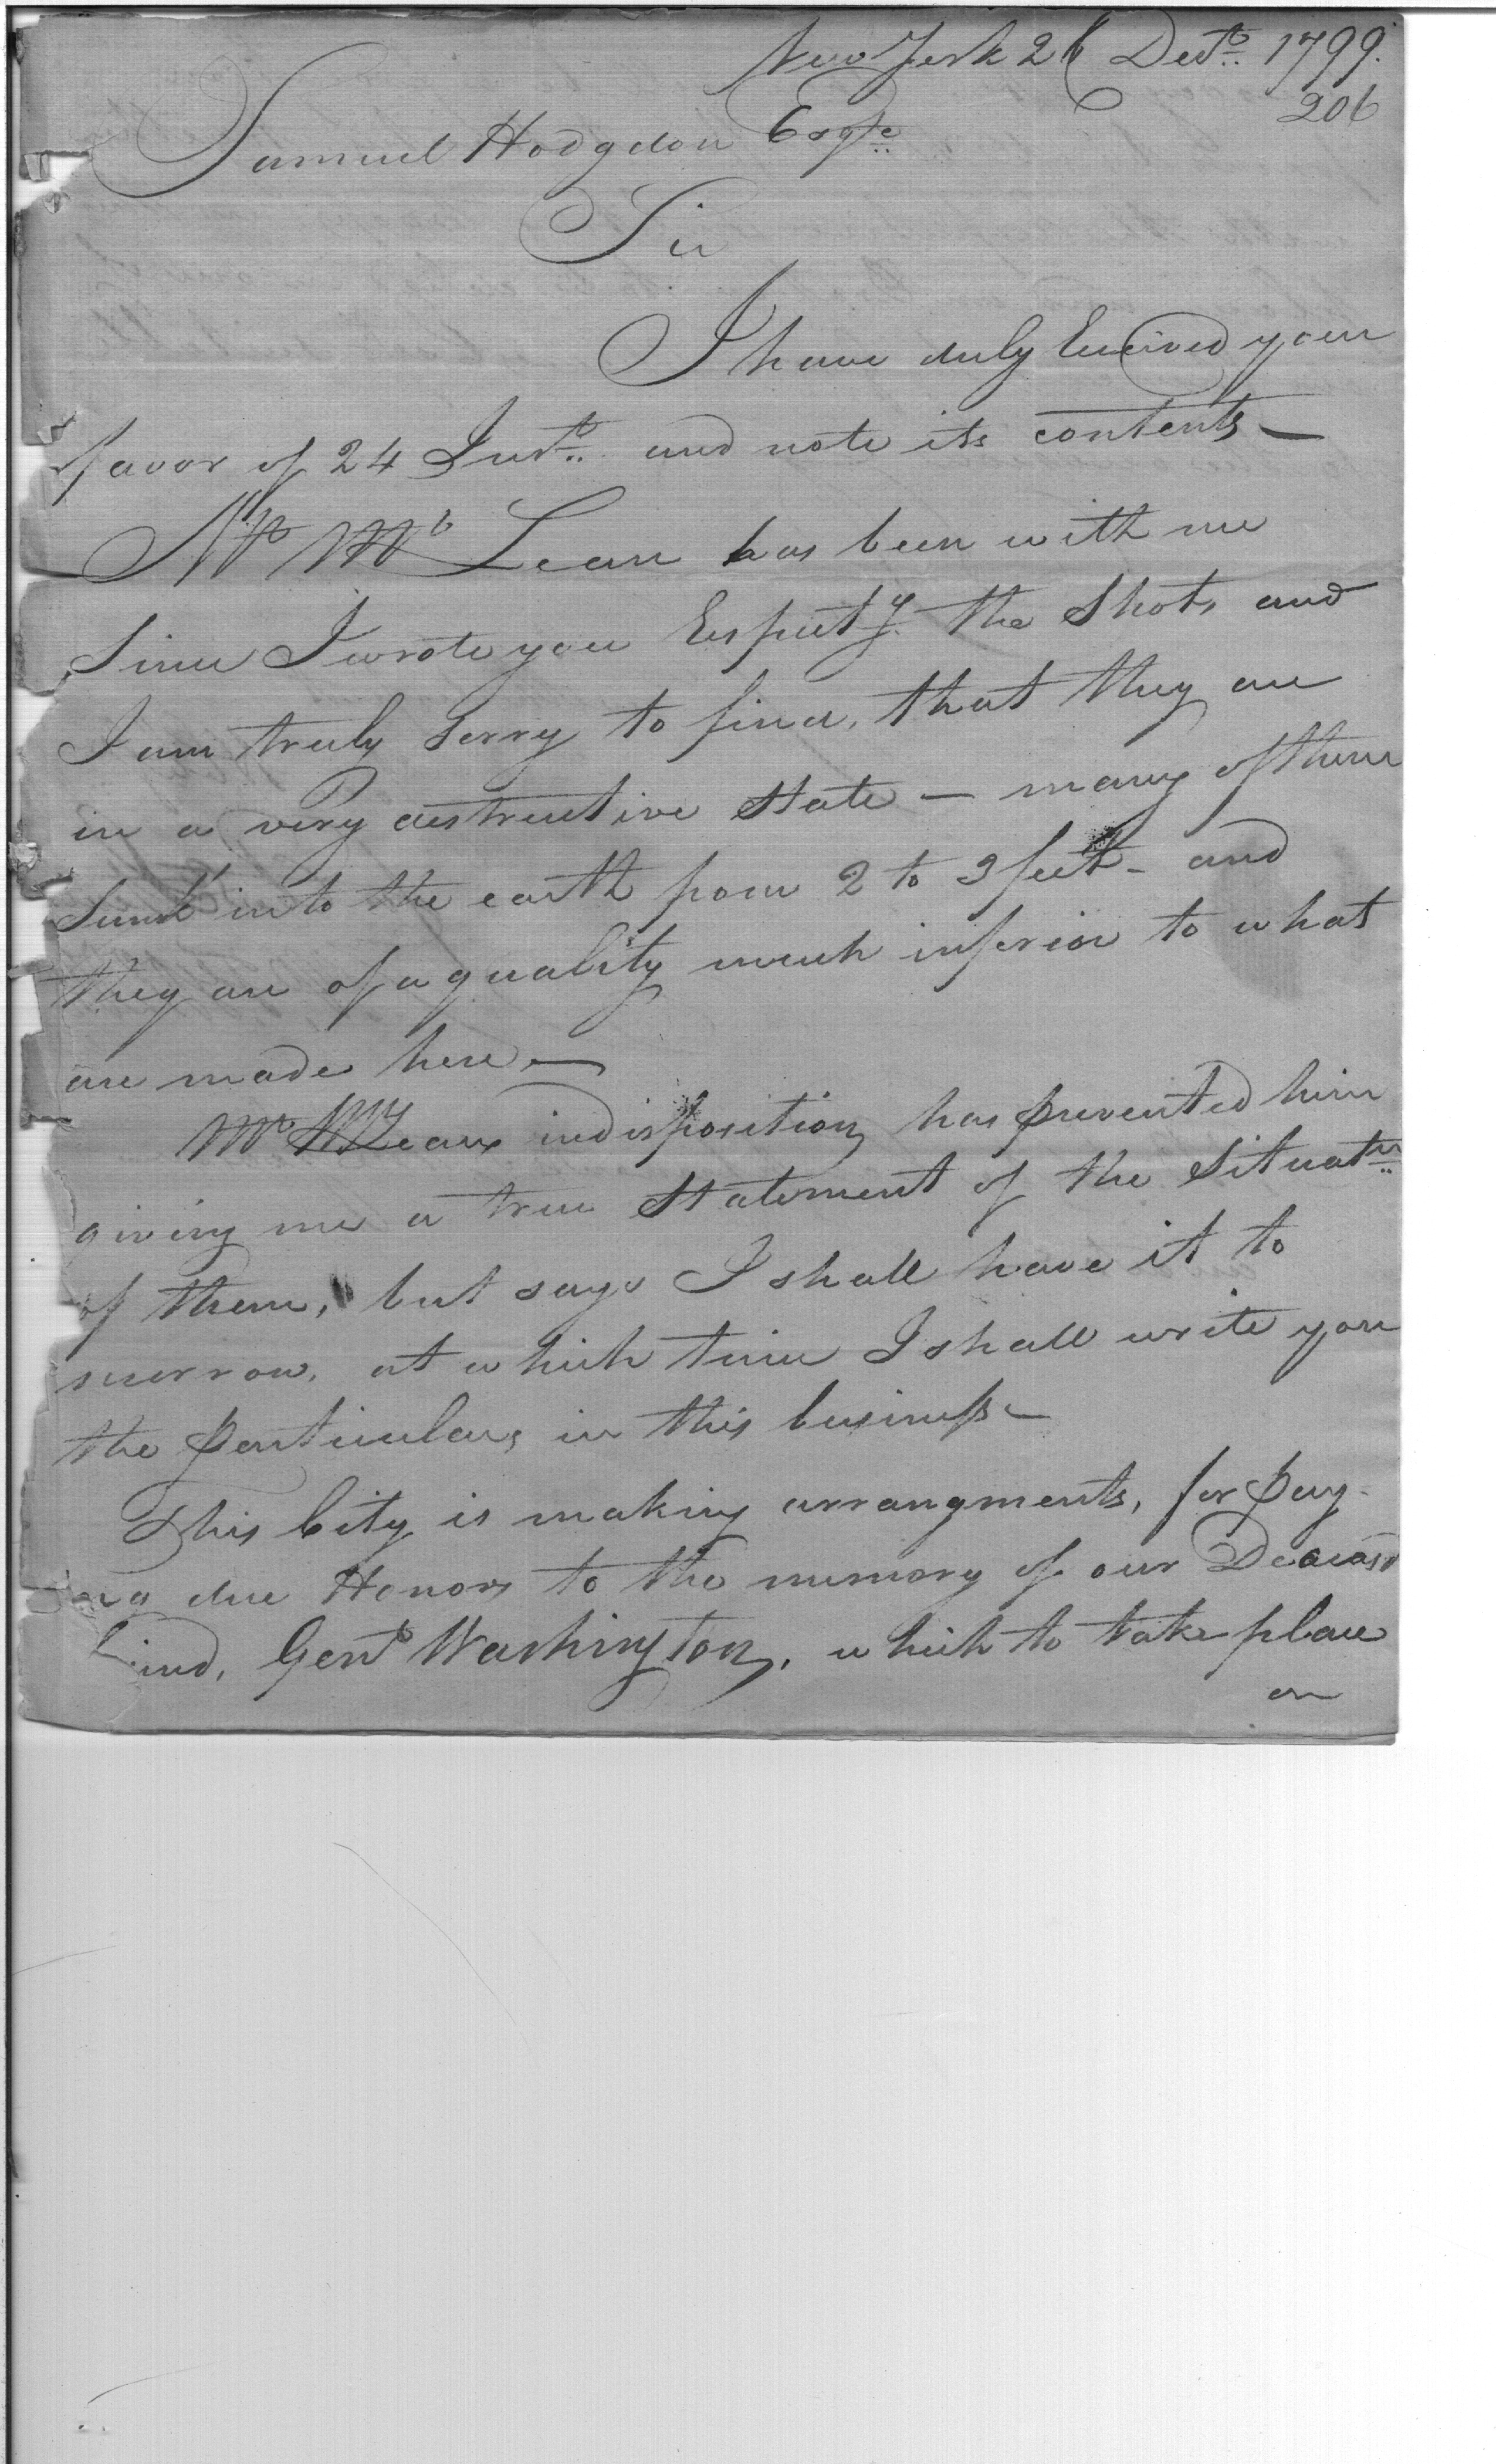 New York 26 Decr. 1799.
206
Samuel Hodgdon Esqre
Sir
I have duly Received your
favor of 24 Inst. and note its contents —
Mr. Mc Lean has been with me
Since I wrote you Respectg. the Shots and
I am truly Sorry to find, that they are
in a very destructive State — many of them
Sunk into the earth from 2 to 3 feet - and
they are of a quality much inferior to what
are made here —
Mr. McLeans indisposition, has prevented him
giving me a true Statement of the Situatn.
of them, but says I shall have it to
morrow, at which time I shall write you
the particulars in this business —
This City is making arrangments, for pay-
ing due Honors to the memory of our Deceasd
Genl. Washington, which to take place
on